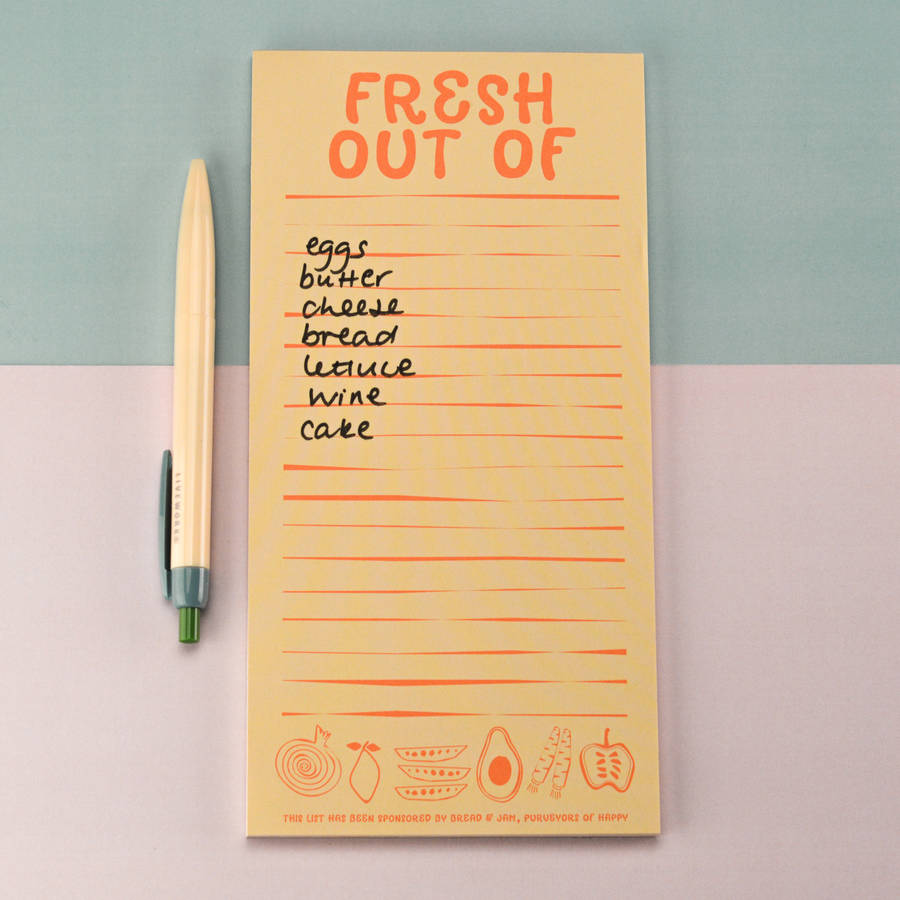 FRESH
OUT OF
eggs
butter
cheese
bread
lettuce
wine
cake
LIVEWORKS
THIS LIST HAS BEEN SPONSORED BY BREAD & JAM, PURVEYORS OF HAPPY